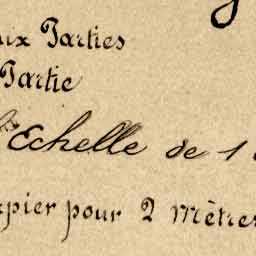 aux Parties
Partie
l'Echelle de 1
papier pour 2 mètres